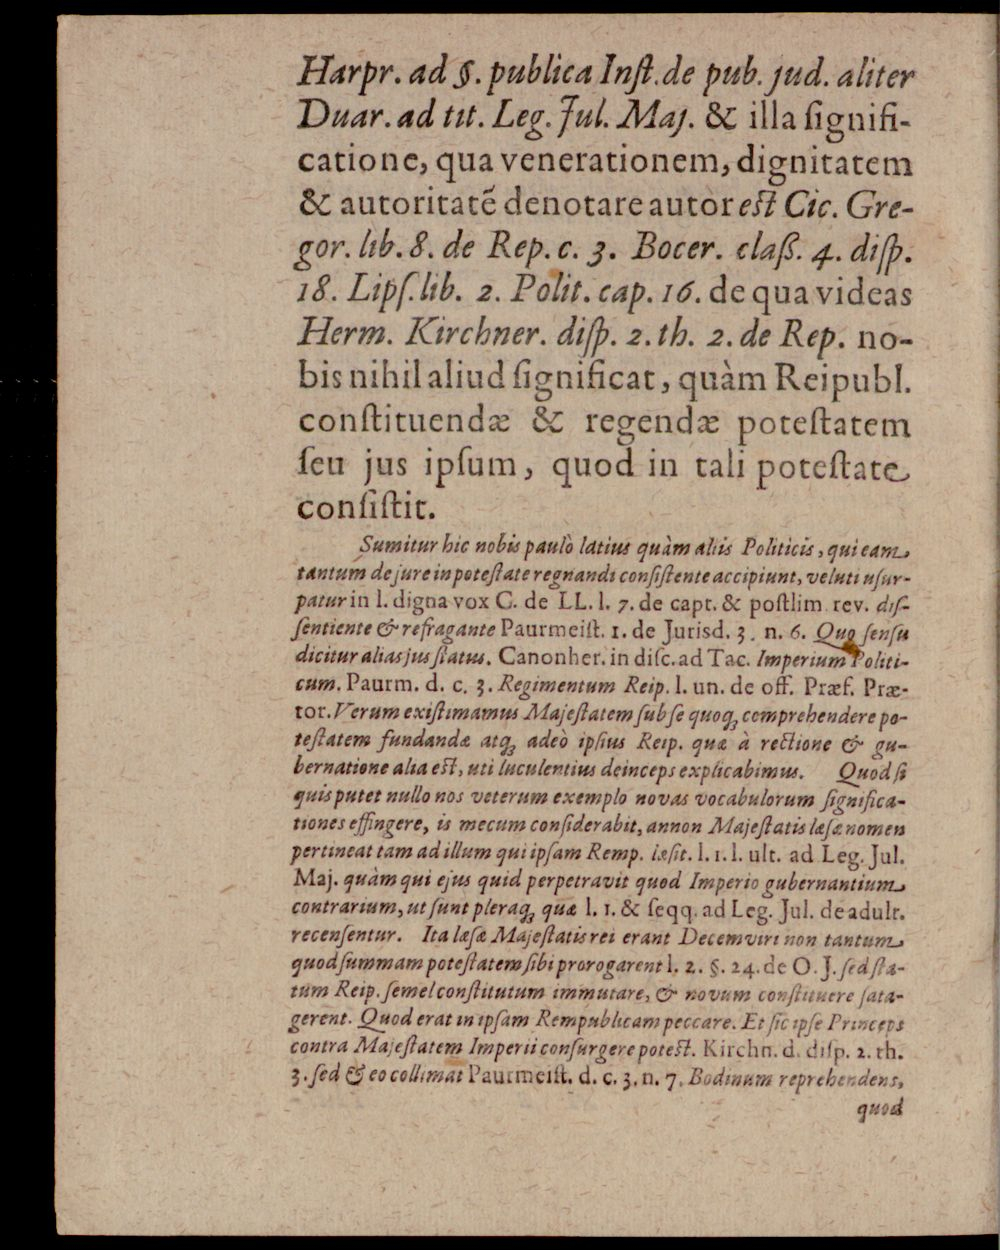 Harpr. ad §. publica Inſt. de pub. jud. aliter
Duar. ad tit. Leg. Jul. Maj. & illa ſignifi-
catione, qua venerationem, dignitatem
& autoritatẽ denotare autor eſt Cic. Gre-
gor. lib. 8. de Rep. c. 3. Bocer. claß. 4. diſp.
18. Lipſ. lib. 2. Polit. cap. 16. de qua videas
Herm. Kirchner. diſp. 2. th. 2. de Rep. no-
bis nihil aliud ſignificat, quàm Reipubl.
conſtituendæ & regendæ poteſtatem
ſeu jus ipſum, quod in tali poteſtate
conſiſtit.
Sumitur hic nobis paulò latius quàm aliis Politicis, qui eam
tantum de jure in poteſtate regnandi conſiſtente accipiunt, veluti uſur-
patur in l. digna vox C. de LL. l. 7. de capt. & poſtlim. rev. diſ-
ſentiente & refragante Paurmeiſt. 1. de Jurisd. 3. n. 6. Quo ſenſu
dicitur alias jus ſtatus. Canonher. in diſc. ad Tac. Imperium Politi-
cum. Paurm. d. c. 3. Regimentum Reip. l. un. de off. Præf. Præ-
tor. Verum exiſtimamus Majeſtatem ſub ſe quoqꝫ comprehendere po-
teſtatem fundandæ atqꝫ adeò ipſius Reip. quæ à rectione & gu-
bernatione alia eſt, uti luculentius deinceps explicabimus. Quod ſi
quis putet nullo nos veterum exemplo novas vocabulorum ſignifica-
tiones effingere, is mecum conſiderabit, annon Majeſtatis læſæ nomen
pertineat tam ad illum qui ipſam Remp. læſit. l. 1. l. ult. ad Leg. Jul.
Maj. quàm qui ejus quid perpetravit quod Imperio gubernantium
contrarium, ut ſunt pleraqꝫ quæ l. 1. & ſeqq. ad Leg. Jul. de adult.
recenſentur. Ita læſæ Majeſtatis rei erant Decemviri non tantum
quod ſummam poteſtatem ſibi prorogarent l. 2. §. 24. de O. J. ſed ſta-
tum Reip. ſemel conſtitutum immutare, & novum conſtituere ſata-
gerent. Quod erat in ipſam Rempublicam peccare. Et ſic ipſe Princeps
contra Majeſtatem Imperii conſurgere poteſt. Kirchn. d. diſp. 2. th.
3. ſed & eo collimat Paurmeiſt. d. c. 3. n. 7. Bodinum reprehendens,
quod